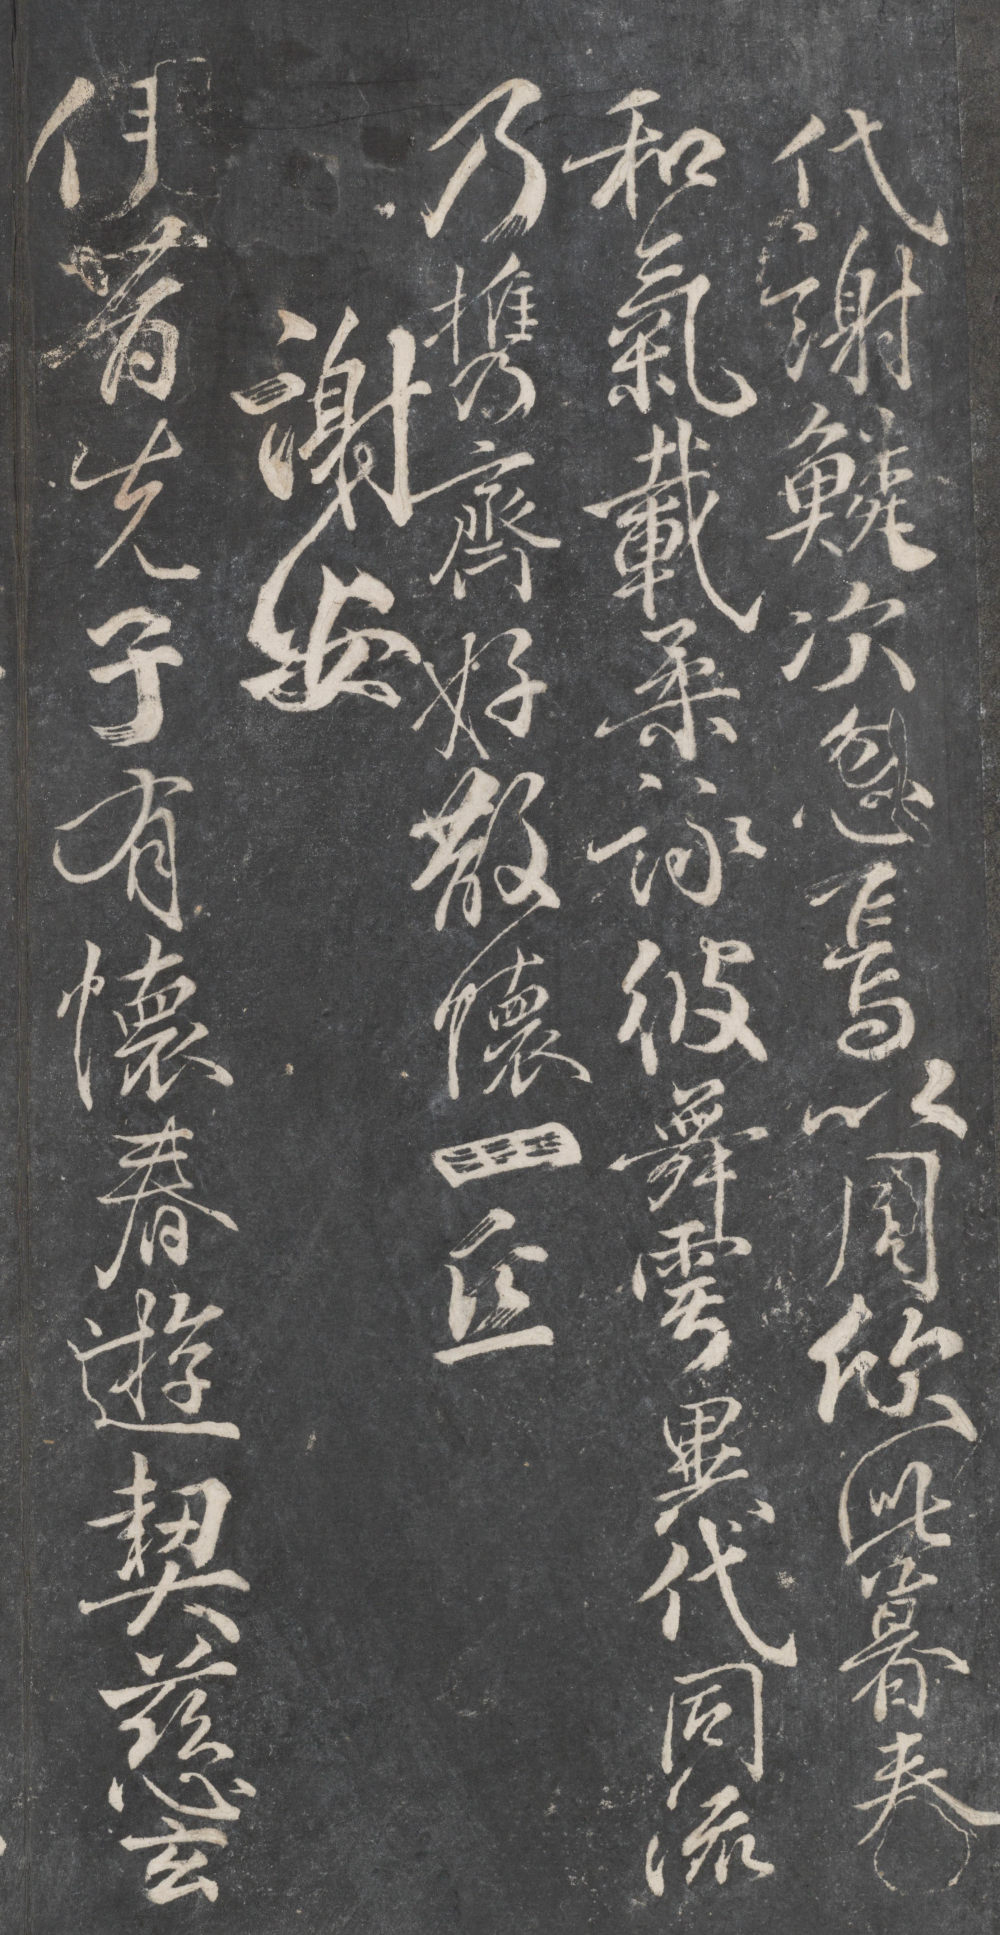 代謝鱗次忽焉以周欣此暮春
和氣載柔詠彼舞雩異代同流
乃携齊好散懷一丘
謝安
伊昔先子有懷春遊契慈言